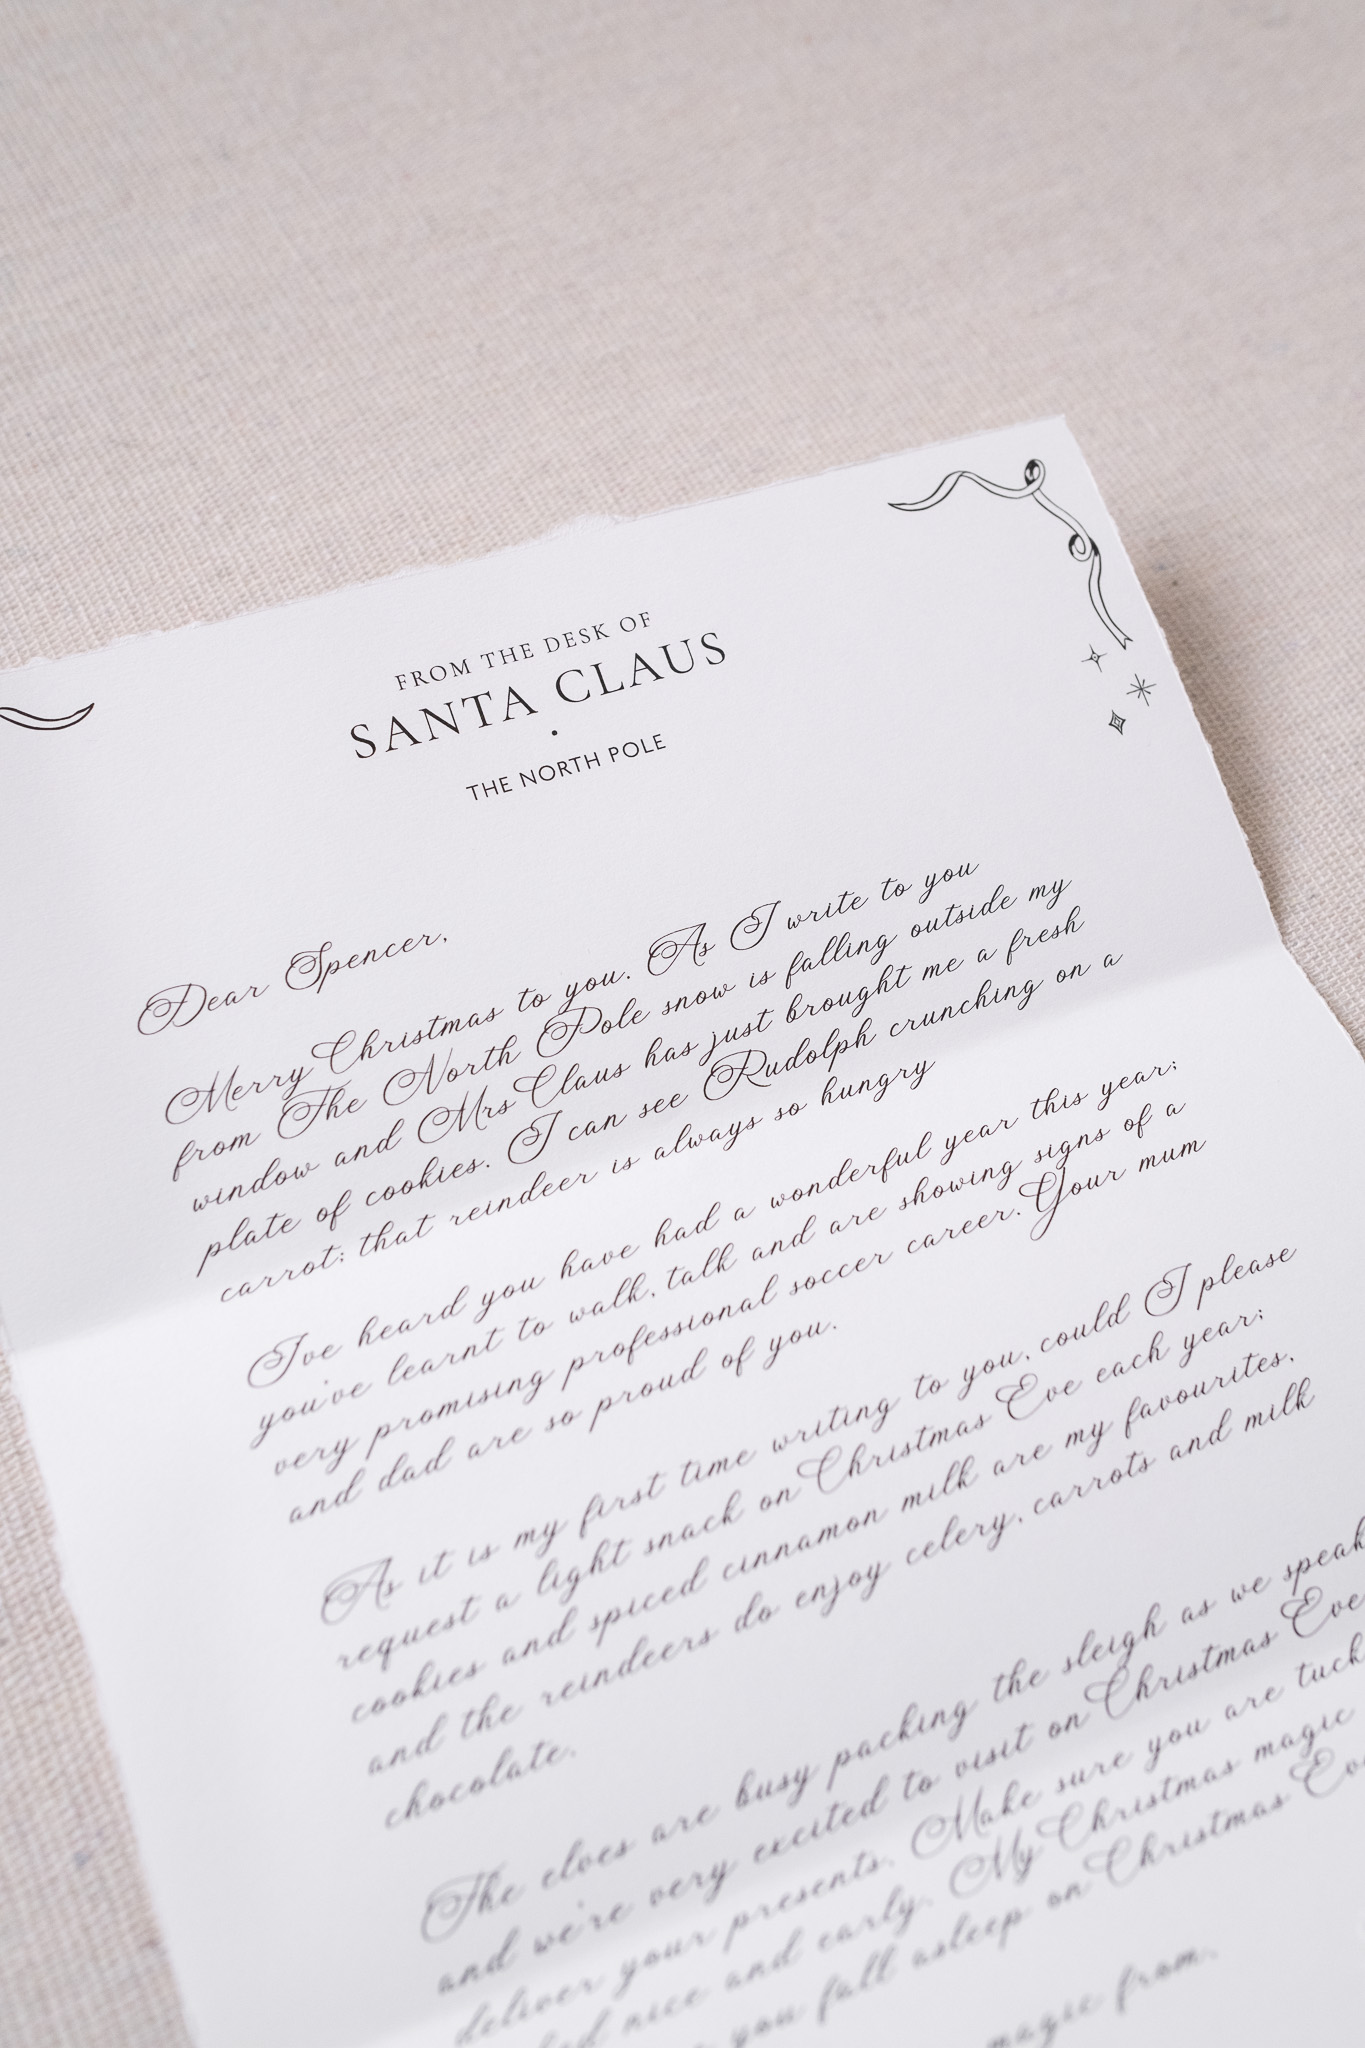 FROM THE DESK OF
SANTA CLAUS
•
THE NORTH POLE
Dear Spencer,
Merry Christmas to you. As I write to you
from The North Pole snow is falling outside my
window and Mrs Claus has just brought me a fresh
plate of cookies. I can see Rudolph crunching on a
carrot; that reindeer is always so hungry
I've heard you have had a wonderful year this year;
you've learnt to walk, talk and are showing signs of a
very promising professional soccer career. Your mum
and dad are so proud of you.
As it is my first time writing to you, could I please
request a light snack on Christmas Eve each year;
cookies and spiced cinnamon milk are my favourites,
and the reindeers do enjoy celery, carrots and milk
chocolate.
The elves are busy packing the sleigh as we speak
and we're very excited to visit on Christmas Eve
deliver your presents. Make sure you are tuck
nice and early. My Christmas magic
you fall asleep on Christmas Ev
magic from,